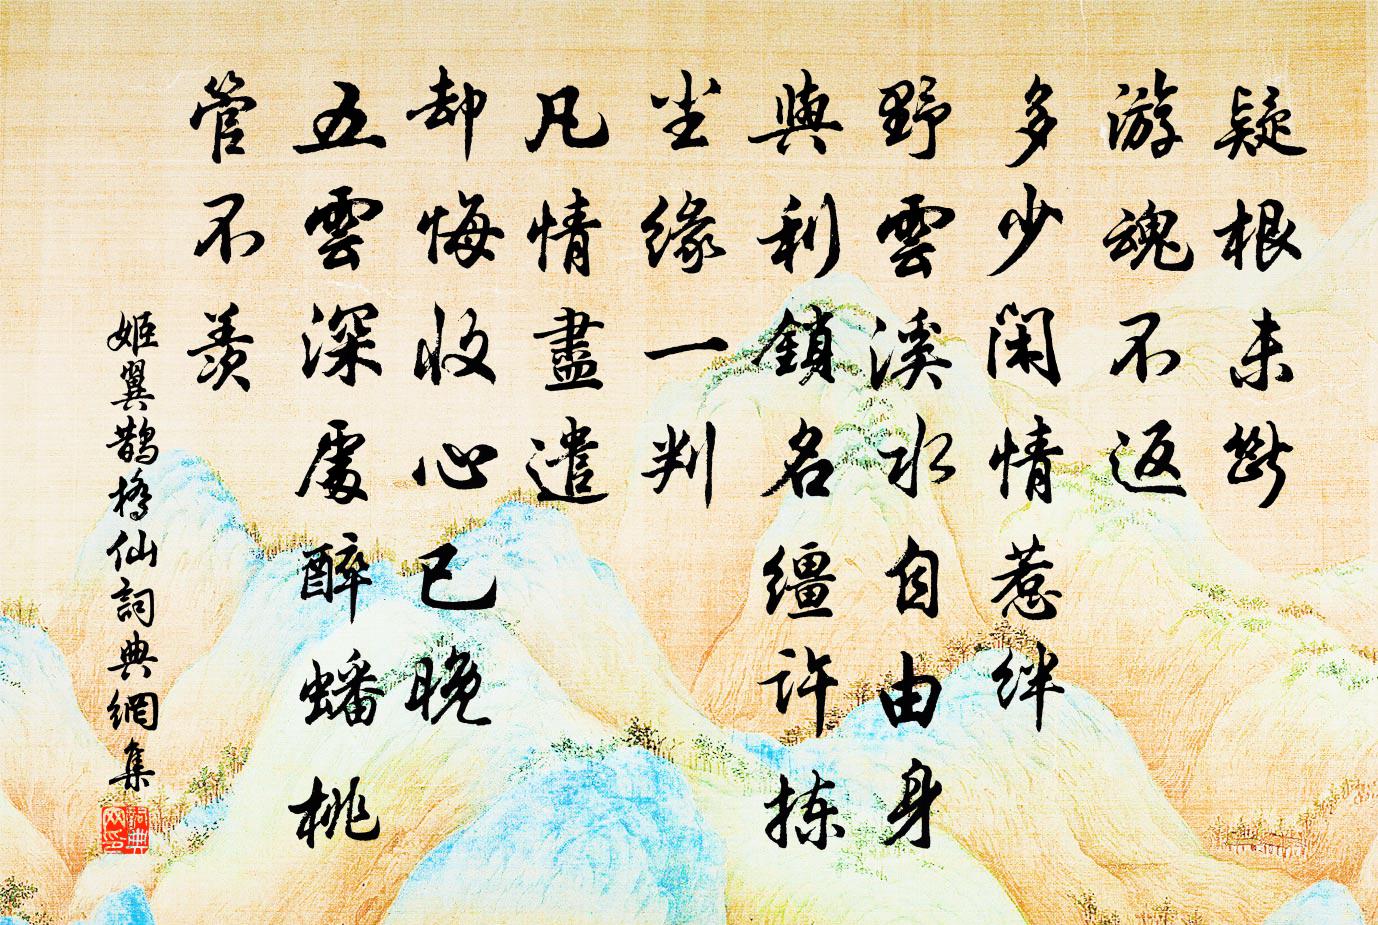 疑根未斷
游魂不返
多少閑情惹絆
野雲溪水自由身
與利鎖名繮許拣
尘緣一判
凡情盡遣
却悔收心已晚
五雲深處醉蟠桃
管不羨
姬翼鵲橋仙詞典網集
詞典网印